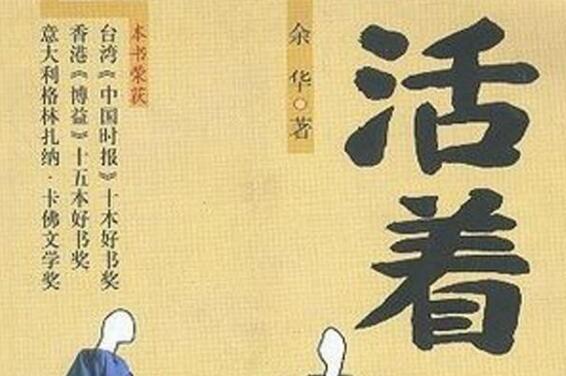 活着
余华◎著
本书荣获
台湾《中国时报》十本好书奖
香港《博益》十五本好书奖
意大利格林扎纳·卡佛文学奖